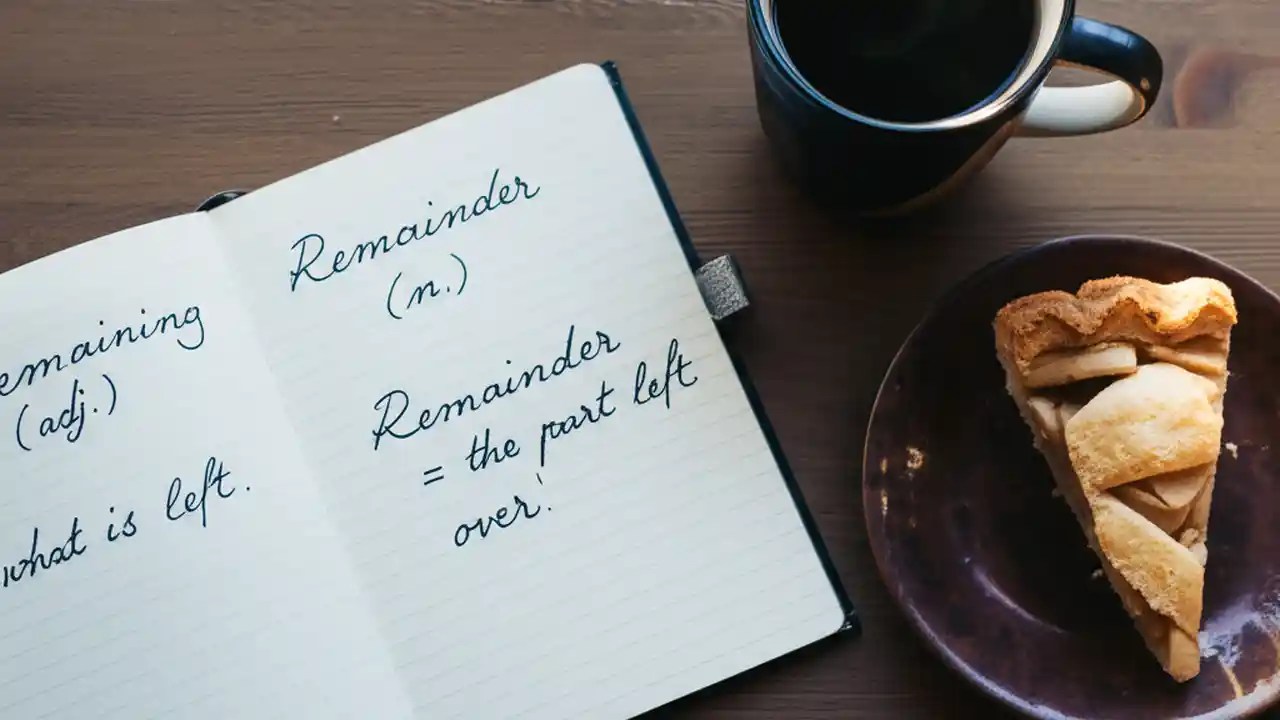 emaining
(adj.)
what is left.
Remainder
(n.)
Remainder
= the part left
over!